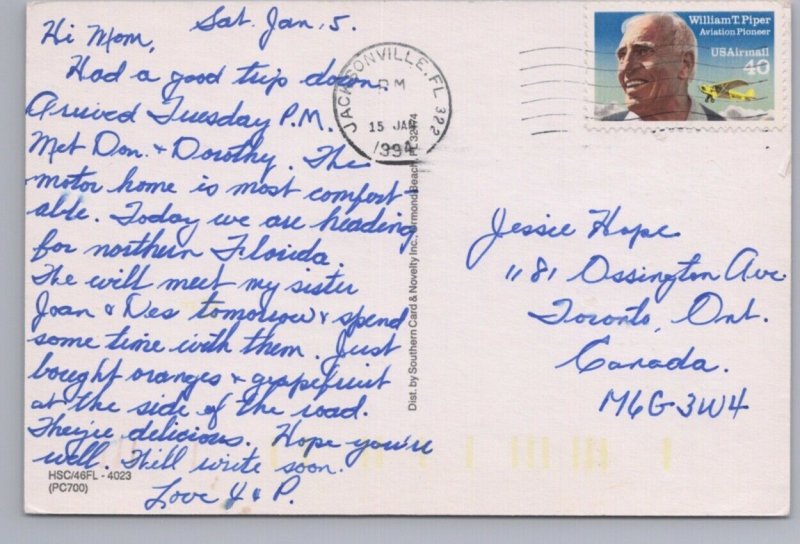 Sat. Jan. 5.
Hi Mom,
Had a good trip down.
Arrived Tuesday P.M.
Met Don & Dorothy. The
motor home is most comfort-
able. Today we are heading
for northern Florida.
The will meet my sister
Joan & Des tomorrow & spend
some time with them. Just
bought oranges & grapefruit
at the side of the road.
They're delicious. Hope you're
well. Will write soon.
Love & P.
HSC/46FL - 4023
(PC700)
Dist. by Southern Card & Novelty Inc., Ormond Beach, FL 32174
JACKSONVILLE, FL 322
PM
15 JAN
1994
William T. Piper
Aviation Pioneer
USAirmail
40
Jessie Hope
1181 Ossington Ave
Toronto, Ont.
Canada.
M6G3W4